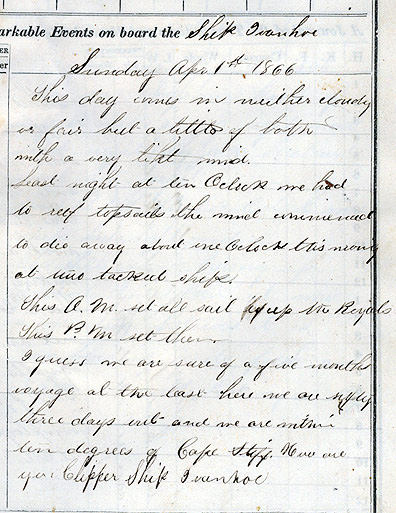 arkable Events on board the Ship Ivanhoe
ER
er
Sunday Apr 1st 1866
This day comes in neither cloudy
or fair but a little of both
with a very likt wind.
Last night at ten Oclock we had
to reef topsails the wind commenced
to die away about one Oclock this morning
at tacked ship.
This A.M. set all sail up to Royals
This P.M set them
I guess we are sure of a five months
voyage at the least here we are
three days out and we are within
ten degrees of Cape How are
you Clipper Ship Ivanhoe